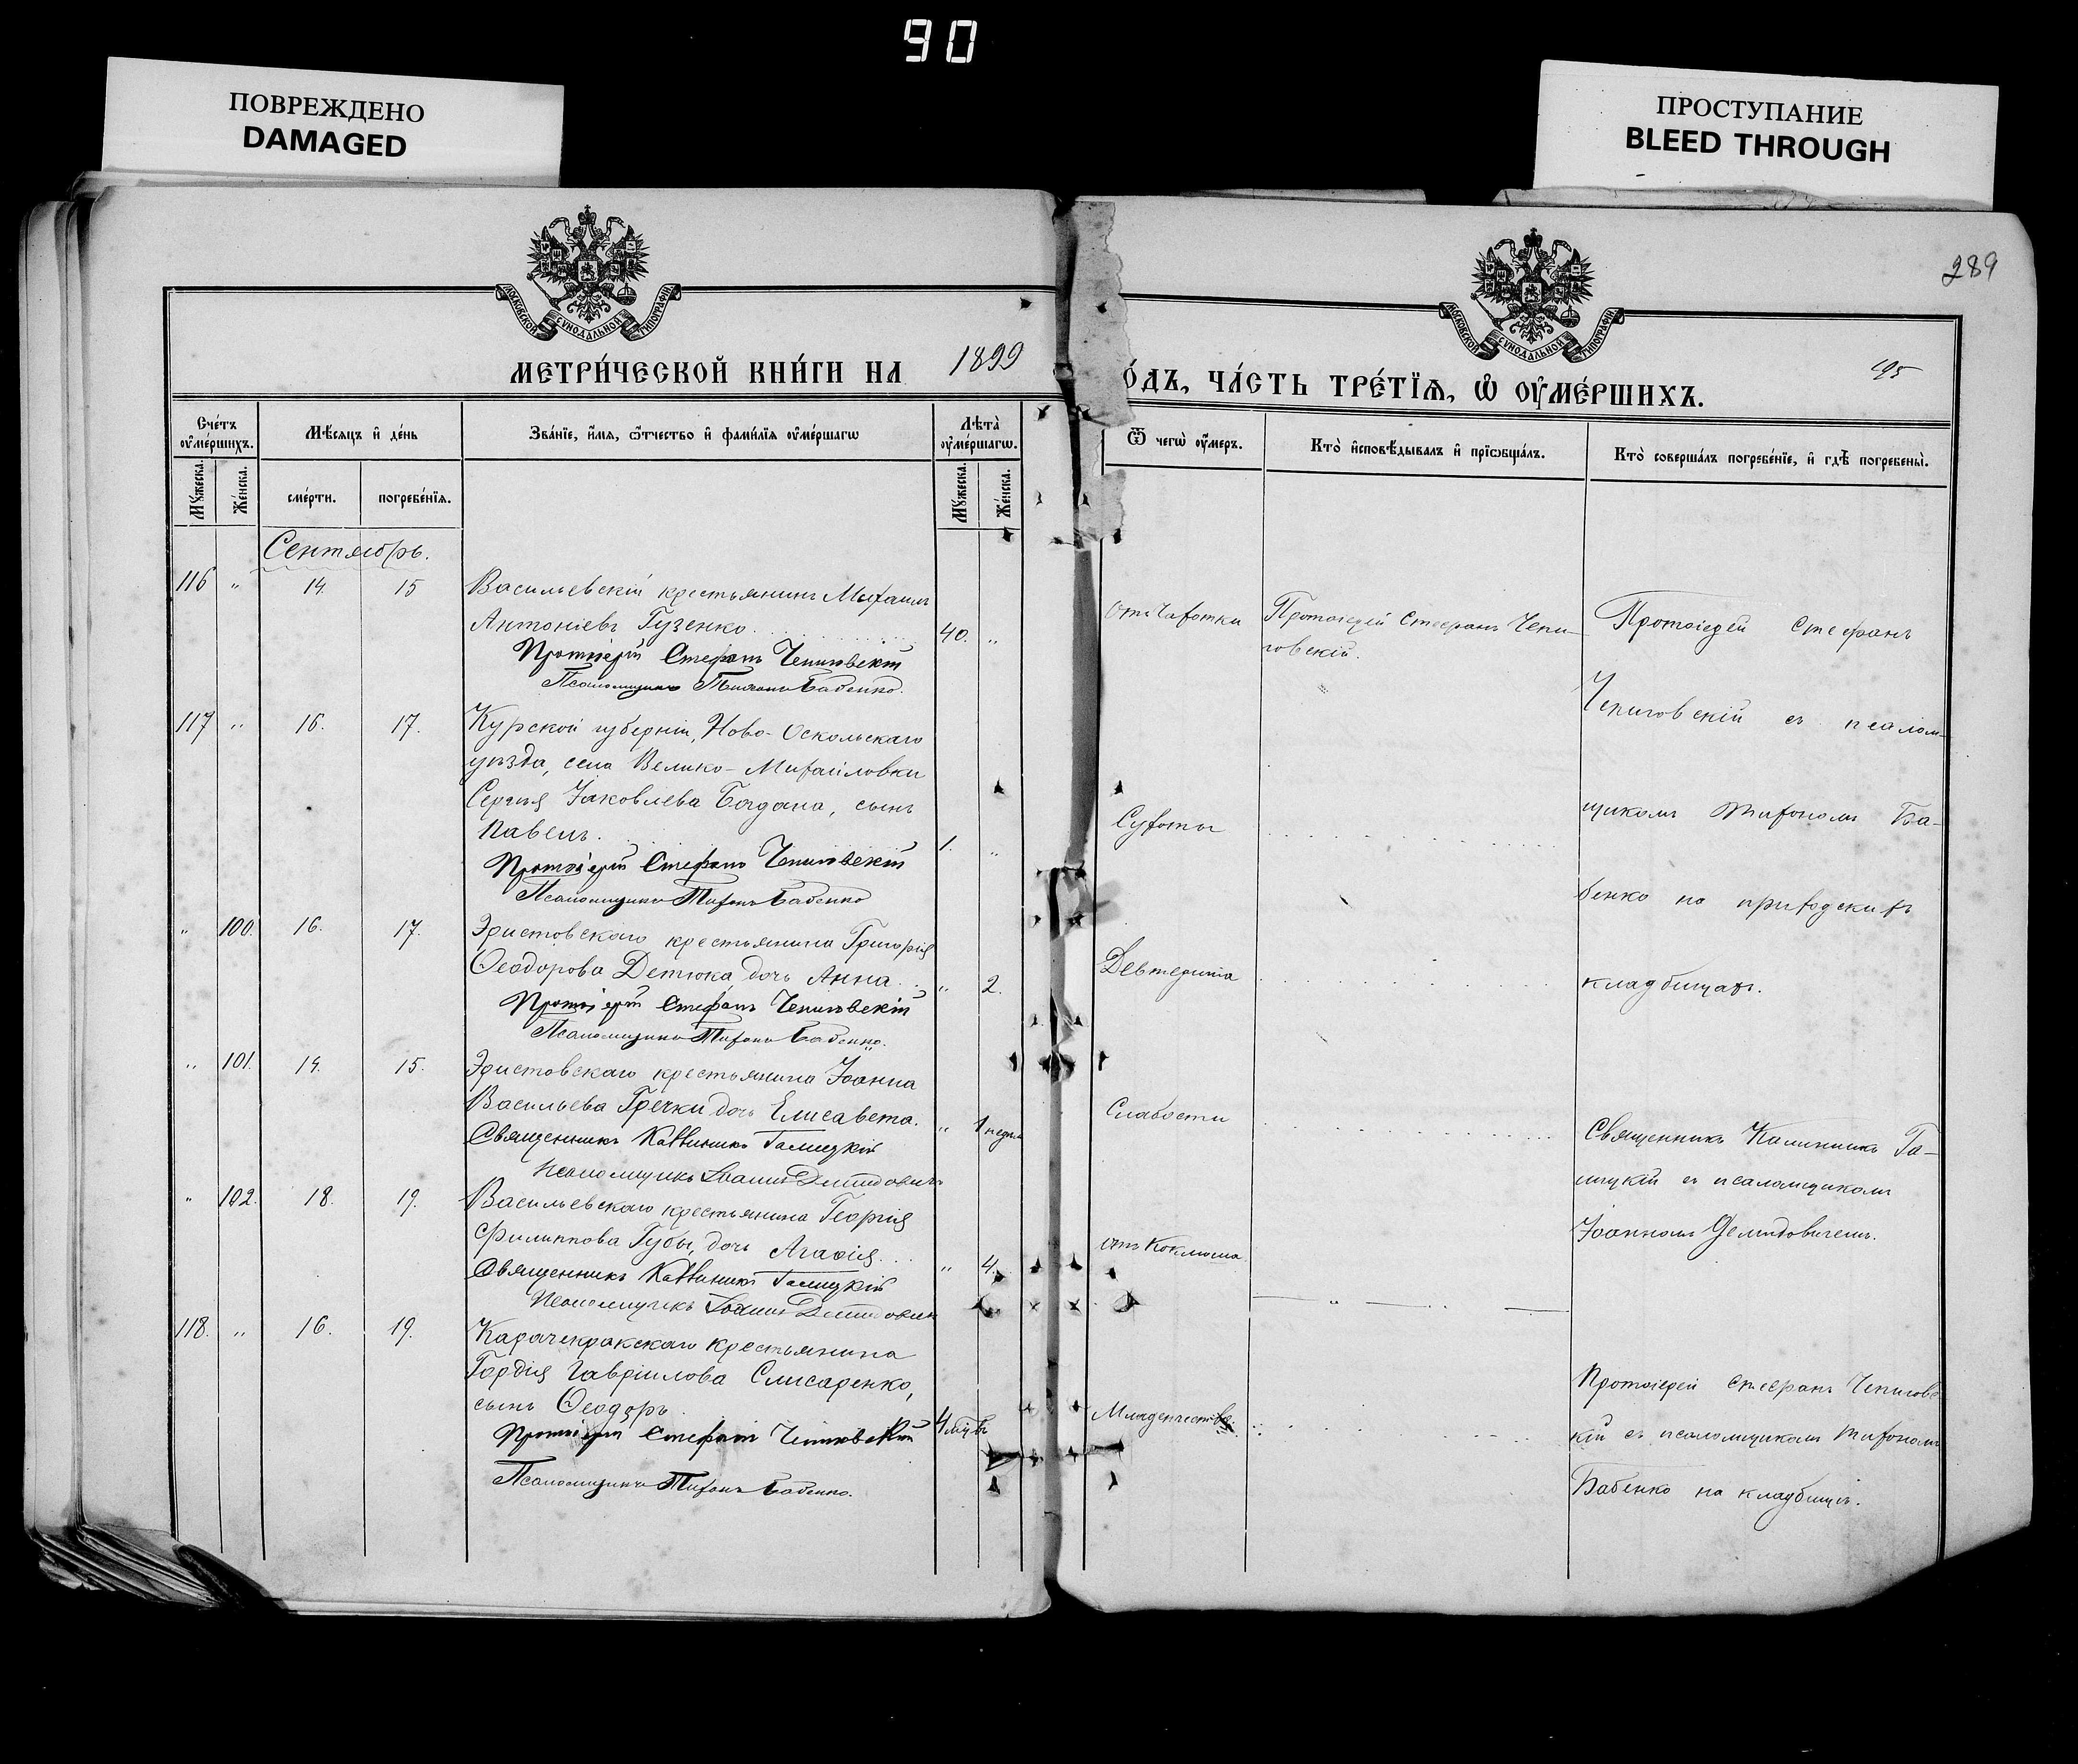 90
ПОВРЕЖДЕНО
DAMAGED
ПРОСТУПАНИЕ
BLEED THROUGH
289
МОСКОВСКОЙ СѴНОДАЛЬНОЙ ТИПОГРАФІИ
МОСКОВСКОЙ СѴНОДАЛЬНОЙ ТИПОГРАФІИ
195
МЕТРИ́ЧЕСКОЙ КНИ́ГИ НА 1899
О́ДЪ, ЧА́СТЬ ТРЕ́ТЇѦ, Ѡ҆ ОУ҆МЕ́РШИХЪ.
Сче́тъ оу҆ме́ршихъ.
Мꙋ́жеска.
Же́нска.
Мѣ́сѧцъ и҆ де́нь
сме́рти.
погребе́нїѧ.
Зва́нїе, и҆́мѧ, ѻ҆́тчество и҆ фами́лїѧ оу҆ме́ршагѡ
Лѣ́та оу҆ме́ршагѡ.
Мꙋ́жеска.
Же́нска.
Ѿ чегѡ̀ оу҆́меръ.
Кто̀ и҆сповѣ́дывалъ и҆ прїѡбща́лъ.
Кто̀ соверша́лъ погребе́нїе, и҆ гдѣ̀ погребены̀.
Сентябрь.
116 " 14 15 Васильевскій крестьянинъ Михаилъ
Антоніевъ Гузенко 40. "
Протоіерей Стефанъ Чепиговскій
Псаломщикъ Тихонъ Бабенко.
отъ Чахотки
Протоіерей Стефанъ Чепи-
говскій.
Протоіерей Стефанъ
Чепиговскій съ псалом-
щикомъ Тихономъ Ба-
бенко на приходскихъ
кладбищахъ.
117 " 16. 17. Курской губерніи, Ново-Оскольскаго
уѣзда, села Велико-Михайловки
Сергѣя Іаковлева Богдана, сынъ
Павелъ. 1. "
Протоіерей Стефанъ Чепиговскій
Псаломщикъ Тихонъ Бабенко
Сухоты
" 100. 16. 17. Эристовскаго крестьянина Григорія
Ѳеодорова Детюка дочь Анна. " 2.
Протоіерей Стефанъ Чепиговскій
Псаломщикъ Тихонъ Бабенко.
Девтерита
" 101. 14. 15. Эристовскаго крестьянина Іоанна
Васильева Гречки дочь Елисавета. " 1 недѣля
Священникъ Каллиникъ Галицкій
Псаломщикъ Іоаннъ Демидовичъ
Слабости
Священникъ Калиникъ Га-
лицкій съ псаломщикомъ
Іоанномъ Демидовичемъ.
" 102. 18. 19. Васильевскаго крестьянина Георгія
Филиппова Губы, дочь Агаѳія " 4.
Священникъ Каллиникъ Галицкій
Псаломщикъ Іоаннъ Демидовичъ
отъ Коклюша
118. " 16. 19. Карачекракскаго крестьянина
Гордія Гавріилова Слисаренко,
сынъ Ѳеодоръ 4 мцвъ
Протоіерей Стефанъ Чепиговскій
Псаломщикъ Тихонъ Бабенко.
Младенчества
Протоіерей Стефанъ Чепиговс
кій съ псаломщикомъ Тихономъ
Бабенко на кладбищѣ.